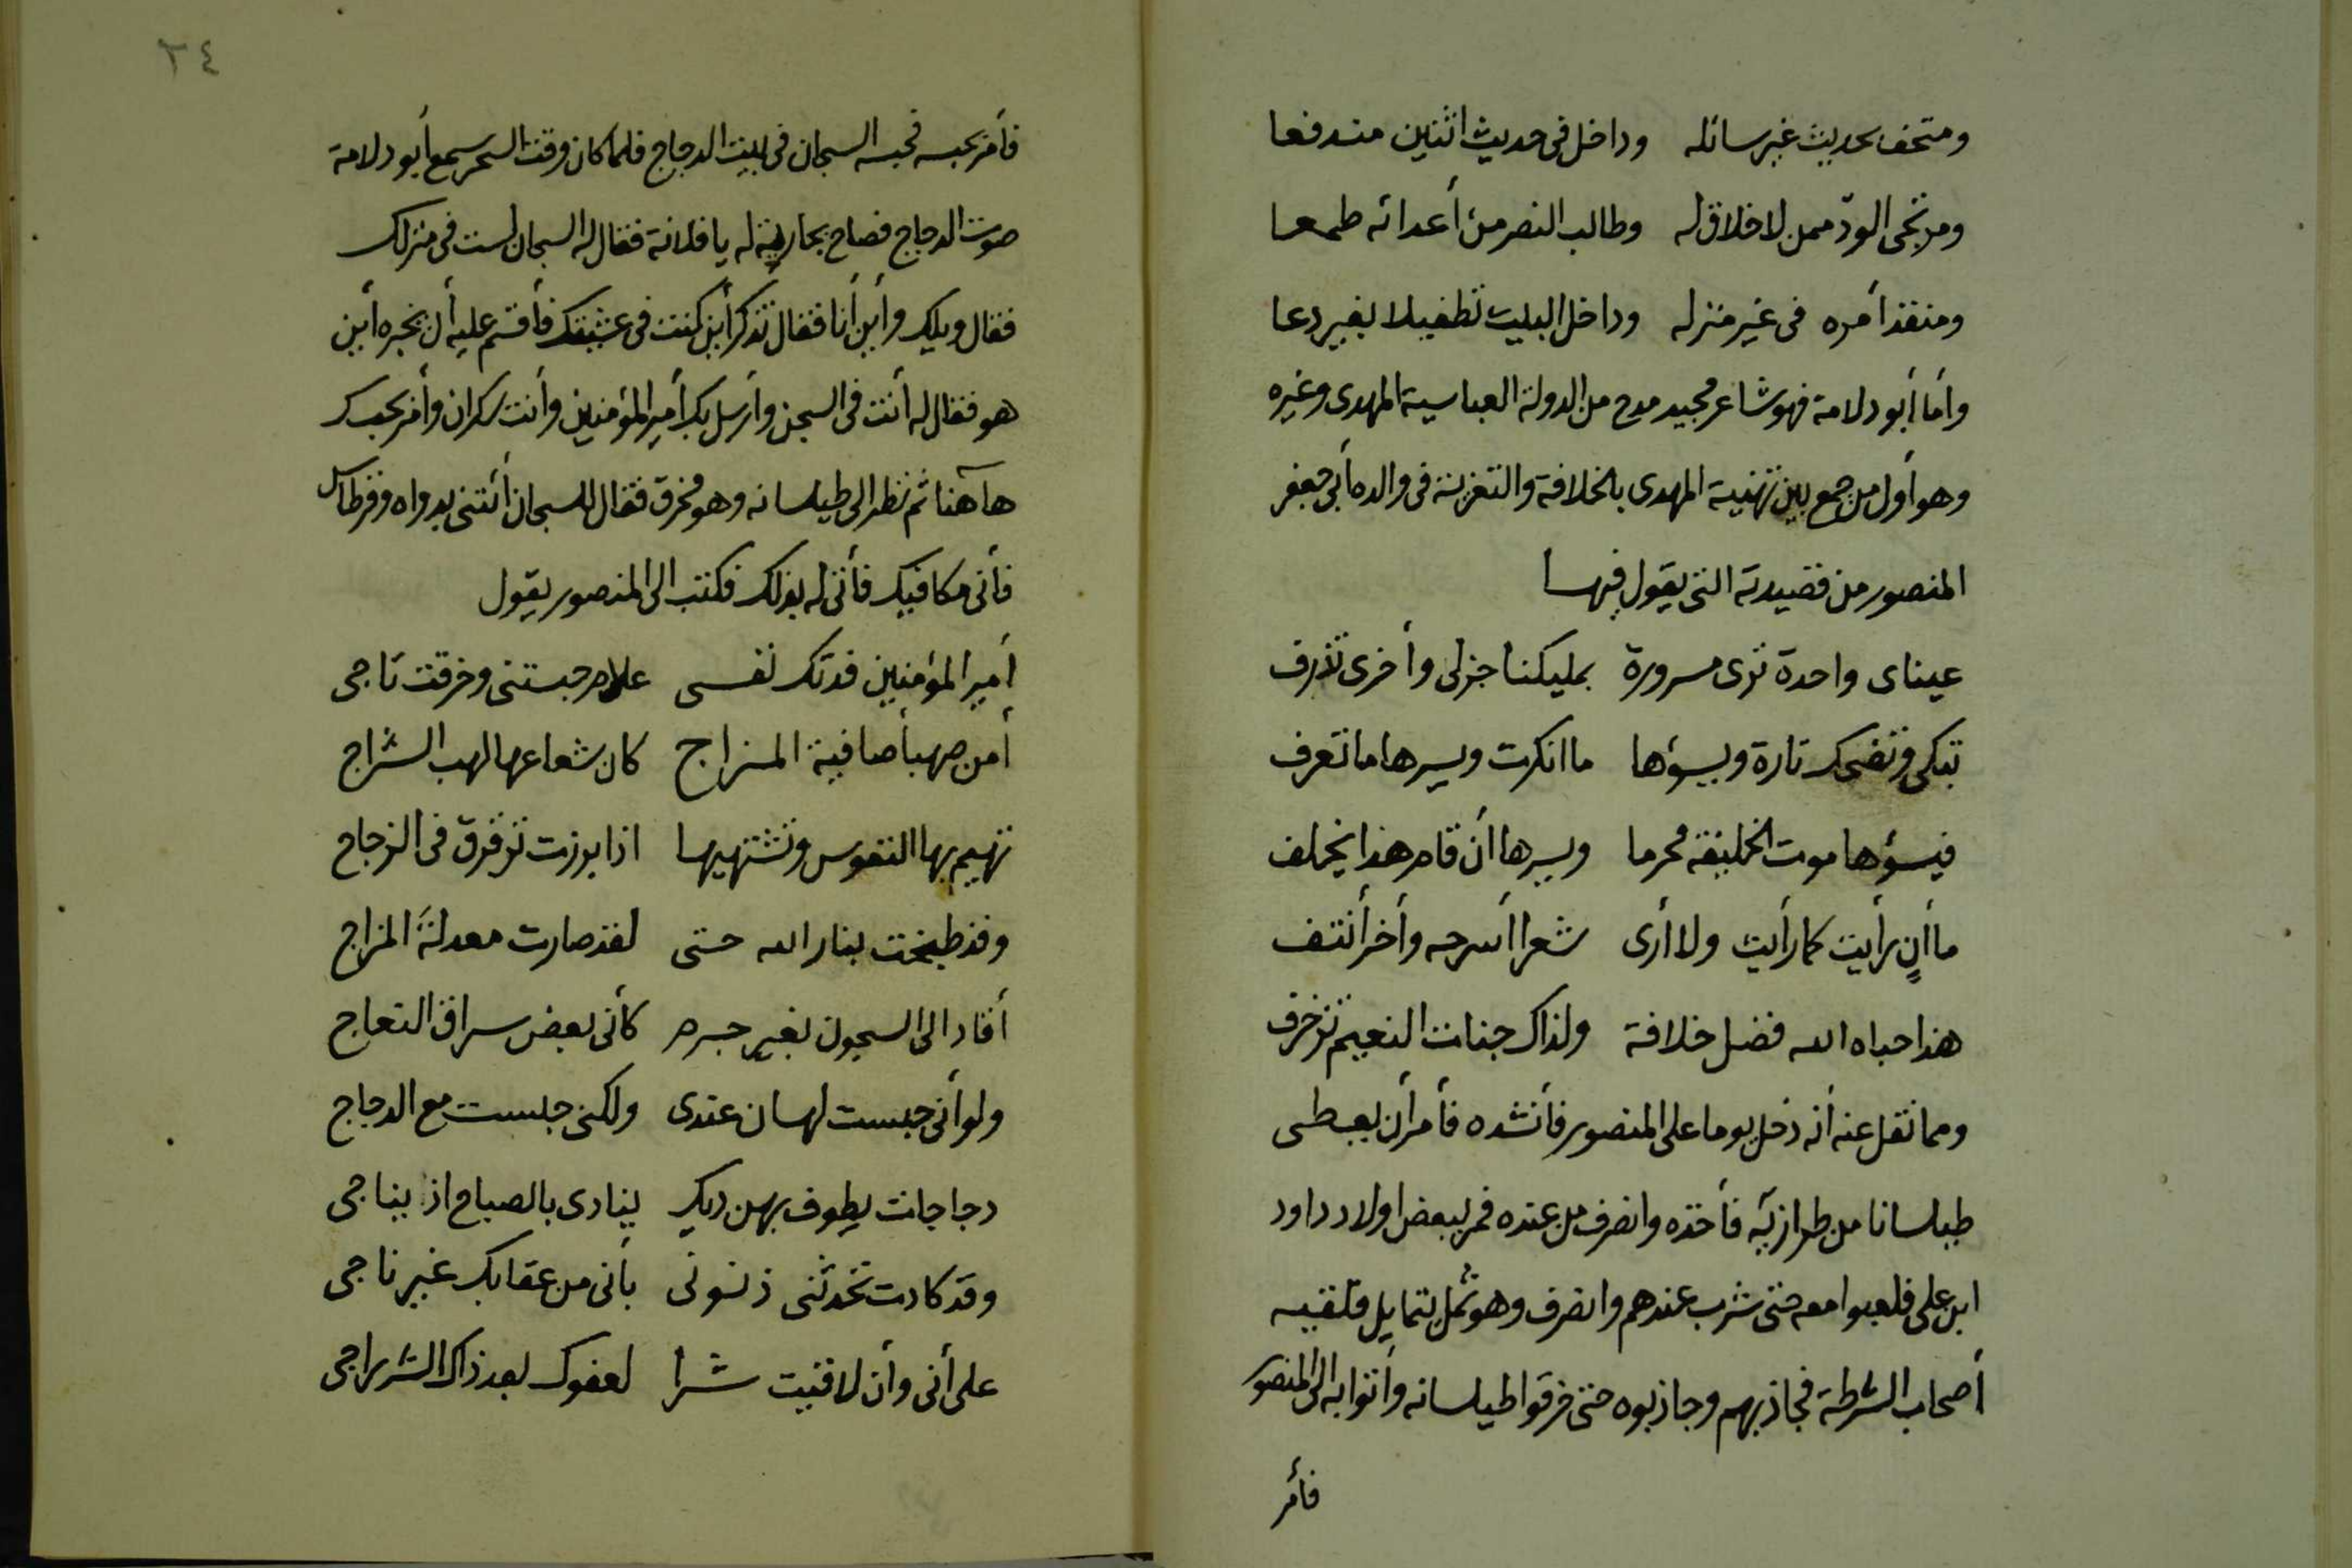 ومتحف بحديث غير سائله وداخل في حديث اثنين مندفعا
ومرتجى الودّ ممن لا خلاق له وطالب النصر من أعدائه طمعا
ومنفذ أمره في غير منزله وداخل البيت تطفيلا بغير دعا
وأما أبو دلامة فهو شاعر مجيد مدح من الدولة العباسية المهدى وغيره
وهو أول من جمع بين تهنية المهدى بالخلافة والتعزية في والده أبى جعفر
المنصور من قصيدته التى يقول فيها
عيناى واحدة ترى مسرورة بمليكنا جزلى وأخرى تذرف
تبكى وتضحك تارة ويسؤها ما انكرت ويسرها ما تعرف
فيسؤها موت الخليفة محرما ويسرها أن قام هذا يخلف
ما أن رأيت كما رأيت ولا أرى شعرا أسرحه وأخر أنتف
هذا حباه الله فضل خلافة ولذاك جنات النعيم تزخرف
ومما نقل عنه أنه دخل يوما على المنصور فأنشده فأمر أن يعطى
طيلسانا من طرازيه فأخذه وانصرف من عنده فمر ببعض اولاد داود
ابن على فلعبوا معه حتى شرب عندهم وانصرف وهو ثمل يتمايل فلقيه
أصحاب الشرطة فجاذبهم وجاذبوه حتى خرقوا طيلسانه وأتوا به الى المنصور
فأمر
٢٤
فأمر بحبسه فحبسه السجان في بيت الدجاج فلما كان وقت السحر سمع أبو دلامة
صوت الدجاج فصاح بجارية له يا فلانة فقال له السجان لست في منزلك
فقال ويلك وأين أنا فقال تذكر أين كنت في عشيتك فأقسم عليه أن يخبره أين
هو فقال له أنت في السجن وأرسل بك أمير المؤمنين وأنت سكران وأمر بحبسك
هاهنا ثم نظر الى طيلسانه وهو مخرق فقال للسجان أئتنى بدواه وقرطاس
فأنى مكافيك فأتى له بذلك فكتب الى المنصور يقول
أمير المؤمنين فدتك نفسى علام حبستنى وخرقت تاجى
أمن صهبأ صافية المزاج كان شعاعها لهب السراج
تهيم بها النفوس وتشتهيها اذا برزت ترقرق في الزجاج
وقد طبخت بنار الله حتى لقد صارت معدلة المزاج
أقاد الى السجون بغير جرم كأنى بعض سراق النعاج
ولو أنى حبست لهان عندى ولكنى حبست مع الدجاج
دجاجات يطوف بهن ديك ينادى بالصياح اذا يناجى
وقد كادت تحدثنى ذنوبى بأنى من عقابك غير ناجى
على أنى وأن لاقيت شرا لعفوك بعد ذاك الشر راجى